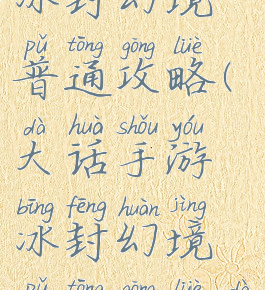 冰封幻境
pǔ tōng gōng lüè
普通攻略(
dà huà shǒu yóu
大话手游
bīng fēng huàn jìng
冰封幻境
pǔ tōng gōng lüè dà